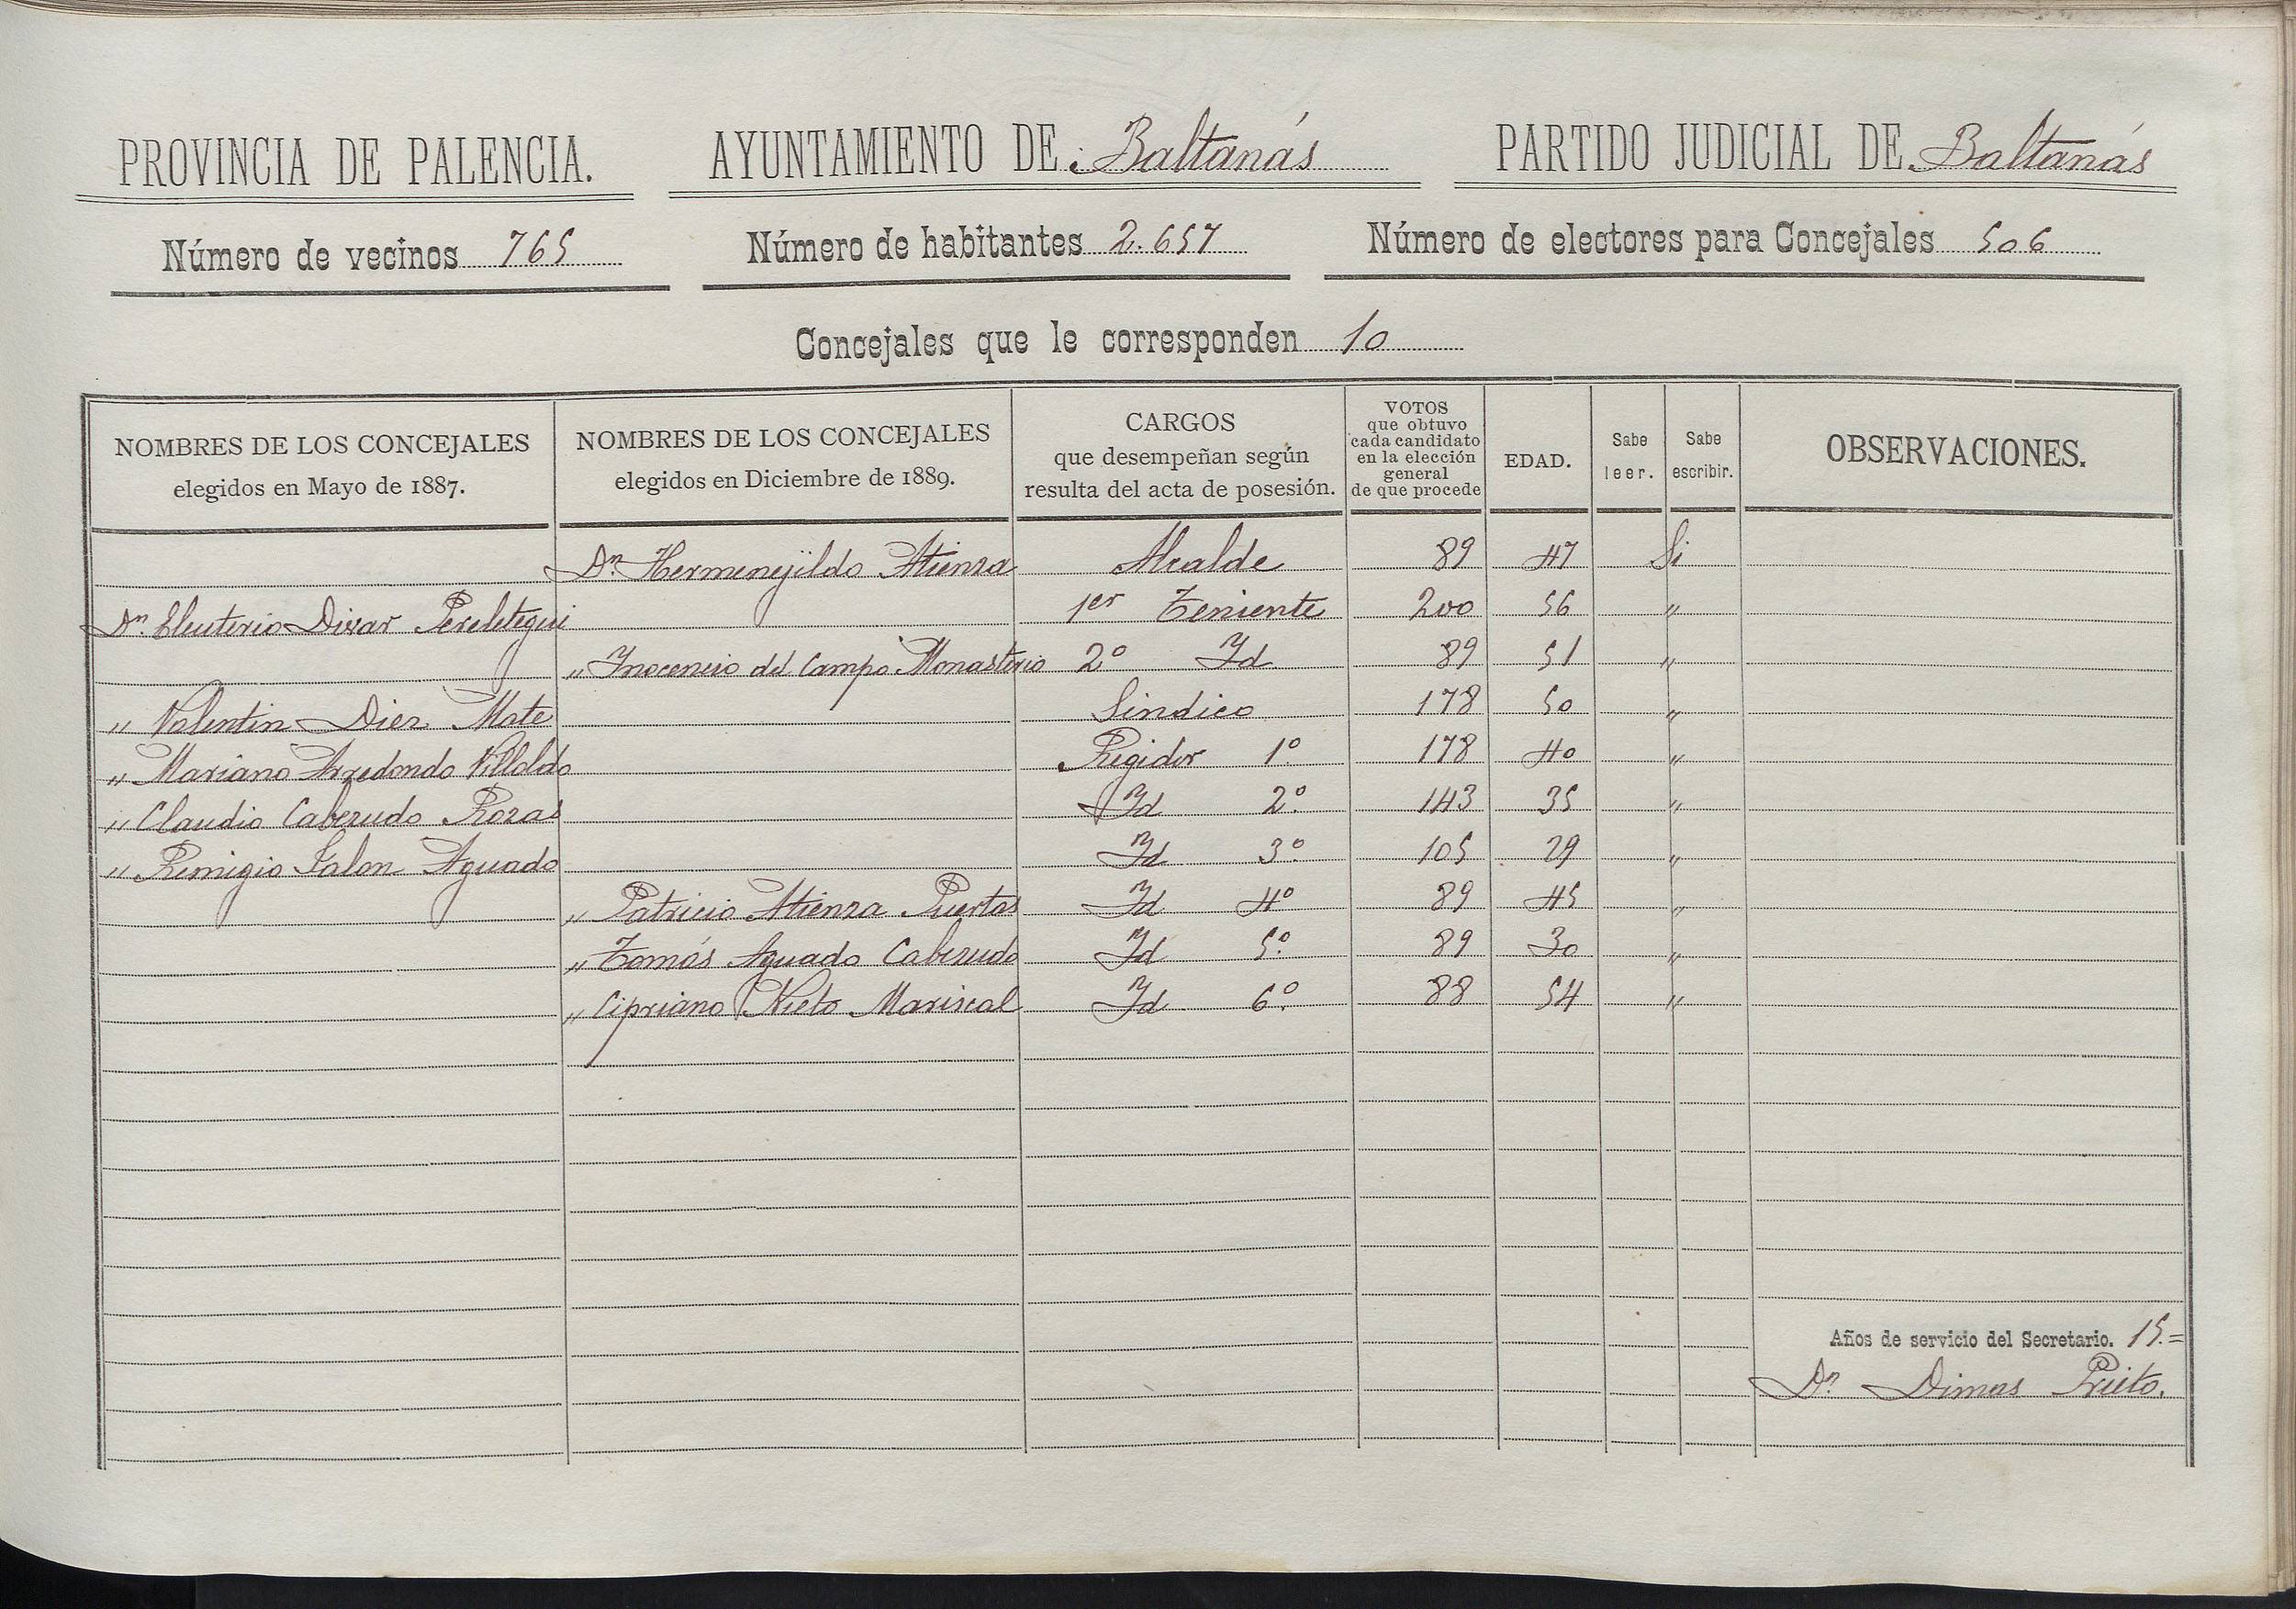 PROVINCIA DE PALENCIA. AYUNTAMIENTO DE Baltanás PARTIDO JUDICIAL DE Baltanás
Número de vecinos 765 Número de habitantes 2.657 Número de electores para Concejales 506
Concejales que le corresponden 10
NOMBRES DE LOS CONCEJALES
elegidos en Mayo de 1887.
NOMBRES DE LOS CONCEJALES
elegidos en Diciembre de 1889.
CARGOS
que desempeñan según
resulta del acta de posesión.
VOTOS
que obtuvo
cada candidato
en la elección
general
de que procede
EDAD.
Sabe
leer.
Sabe
escribir.
OBSERVACIONES.
Dn. Hermenejildo Atienza Alcalde 89 47 Si
Dn. Eleuterio Divar Pereletegui 1er Teniente 200 56 "
" Inocencio del Campo Monasterio 2º Id 89 51 "
" Valentin Diez Mate Sindico 178 50 "
" Mariano Arredondo Villoldo Regidor 1º 178 40 "
" Claudio Cabezudo Rozas Id 2º 143 35 "
" Remigio Jalon Aguado Id 3º 105 29 "
" Patricio Atienza Puertas Id 4º 89 45 "
" Tomás Aguado Cabezudo Id 5º 89 30 "
" Cipriano Nieto Mariscal Id 6º 88 54 "
Años de servicio del Secretario. 15.=
Dn. Dimas Prieto.